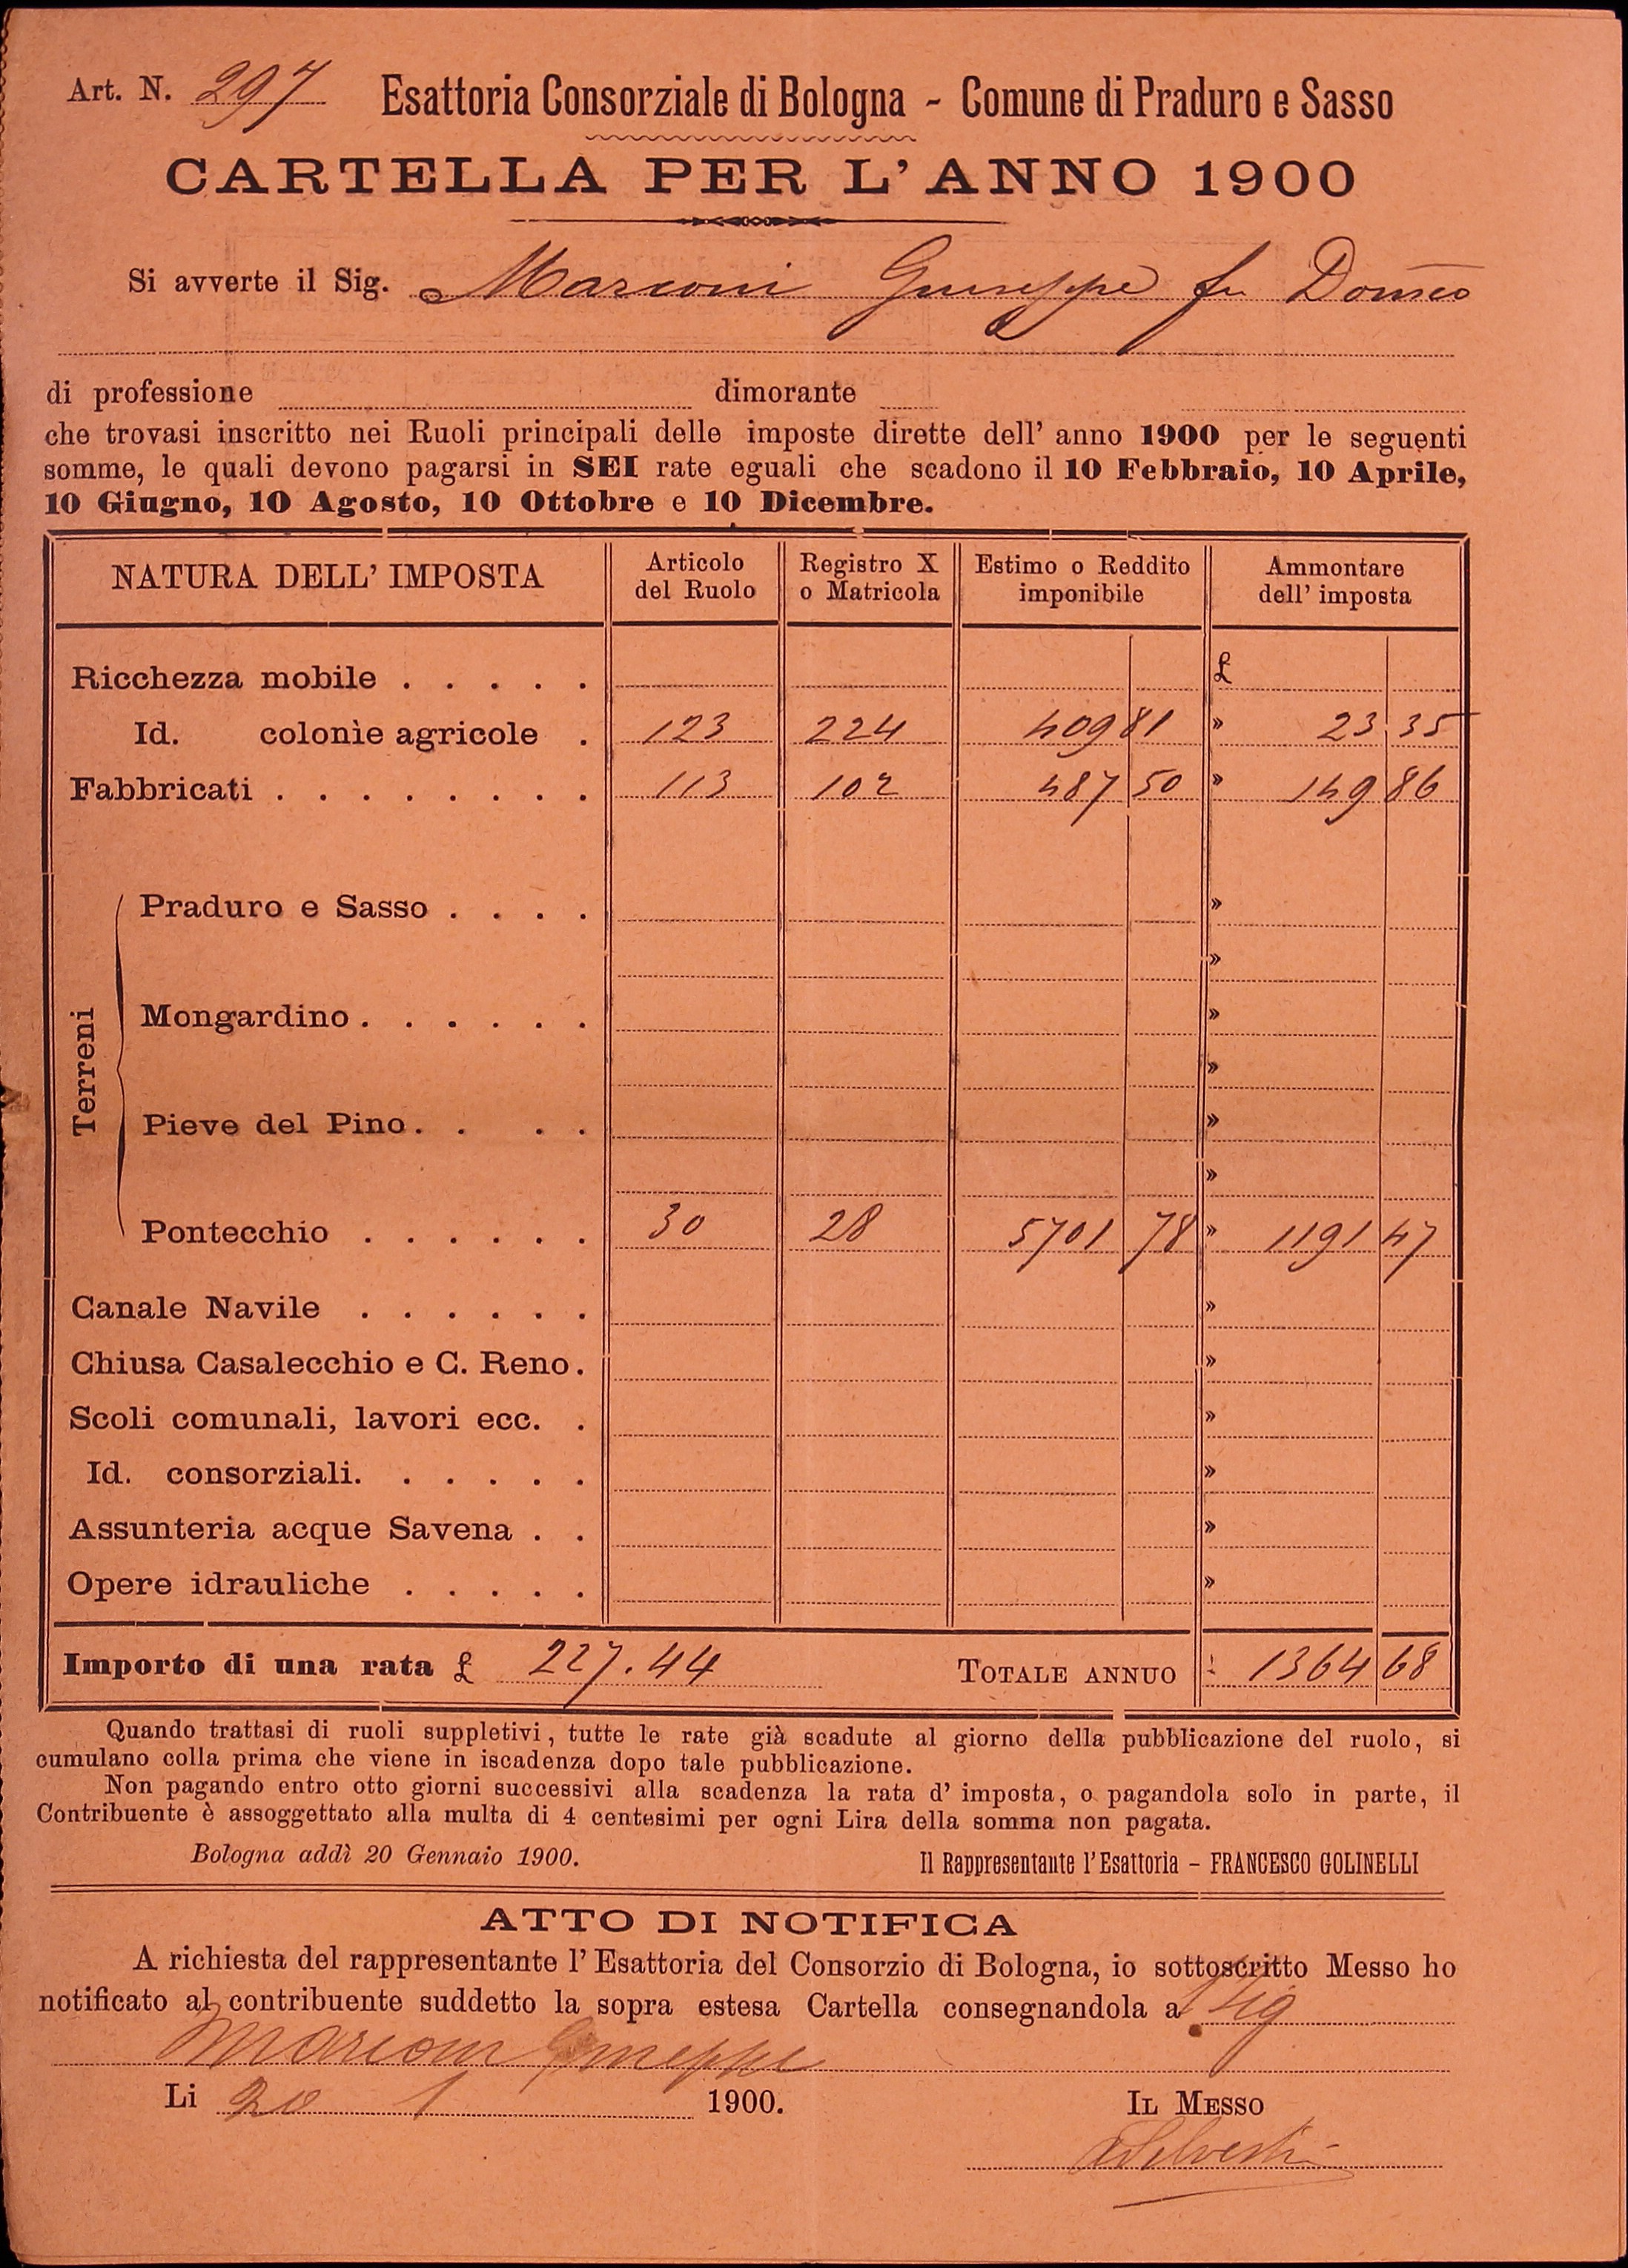 Art. N. 297 Esattoria Consorziale di Bologna - Comune di Praduro e Sasso
CARTELLA PER L'ANNO 1900
Si avverte il Sig. Marconi Giuseppe fu Domco
di professione dimorante
che trovasi inscritto nei Ruoli principali delle imposte dirette dell' anno 1900 per le seguenti
somme, le quali devono pagarsi in SEI rate eguali che scadono il 10 Febbraio, 10 Aprile,
10 Giugno, 10 Agosto, 10 Ottobre e 10 Dicembre.
NATURA DELL' IMPOSTA Articolo del Ruolo Registro X o Matricola Estimo o Reddito imponibile Ammontare dell' imposta
Ricchezza mobile . . . . . £
Id. colonìe agricole . 123 224 409 81 » 23 35
Fabbricati . . . . . . . . 113 102 487 50 » 149 86
Terreni
Praduro e Sasso . . . . »
»
Mongardino . . . . . . »
»
Pieve del Pino . . . . »
»
Pontecchio . . . . . . 30 28 5701 78 » 1191 47
Canale Navile . . . . . . »
Chiusa Casalecchio e C. Reno . »
Scoli comunali, lavori ecc. . »
Id. consorziali. . . . . . »
Assunteria acque Savena . . »
Opere idrauliche . . . . . »
Importo di una rata £ 227.44 TOTALE ANNUO 1364 68
Quando trattasi di ruoli suppletivi, tutte le rate già scadute al giorno della pubblicazione del ruolo, si
cumulano colla prima che viene in iscadenza dopo tale pubblicazione.
Non pagando entro otto giorni successivi alla scadenza la rata d' imposta, o pagandola solo in parte, il
Contribuente è assoggettato alla multa di 4 centesimi per ogni Lira della somma non pagata.
Bologna addì 20 Gennaio 1900. Il Rappresentante l'Esattoria - FRANCESCO GOLINELLI
ATTO DI NOTIFICA
A richiesta del rappresentante l' Esattoria del Consorzio di Bologna, io sottoscritto Messo ho
notificato al contribuente suddetto la sopra estesa Cartella consegnandola a Sig
Marconi Giuseppe
Li 20 1 1900. IL MESSO